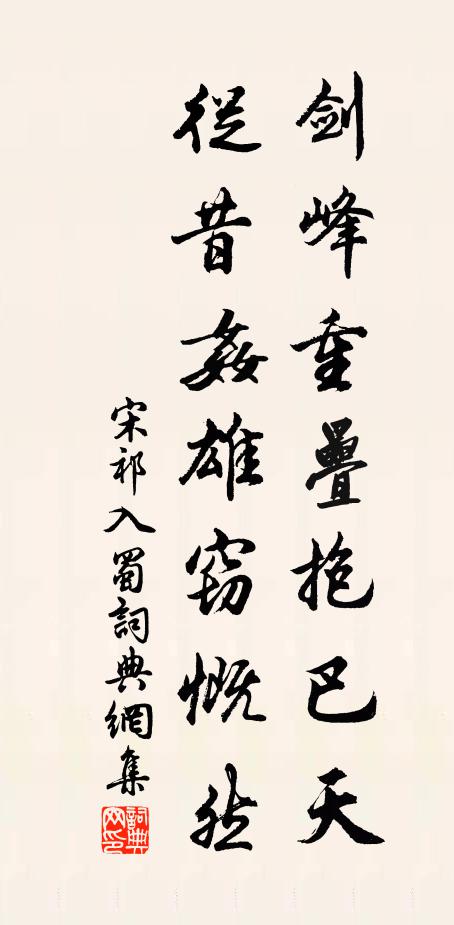 劍峰重疊抱巴天
從昔姦雄竊慨然
宋祁入蜀詞典網集
詞典網印